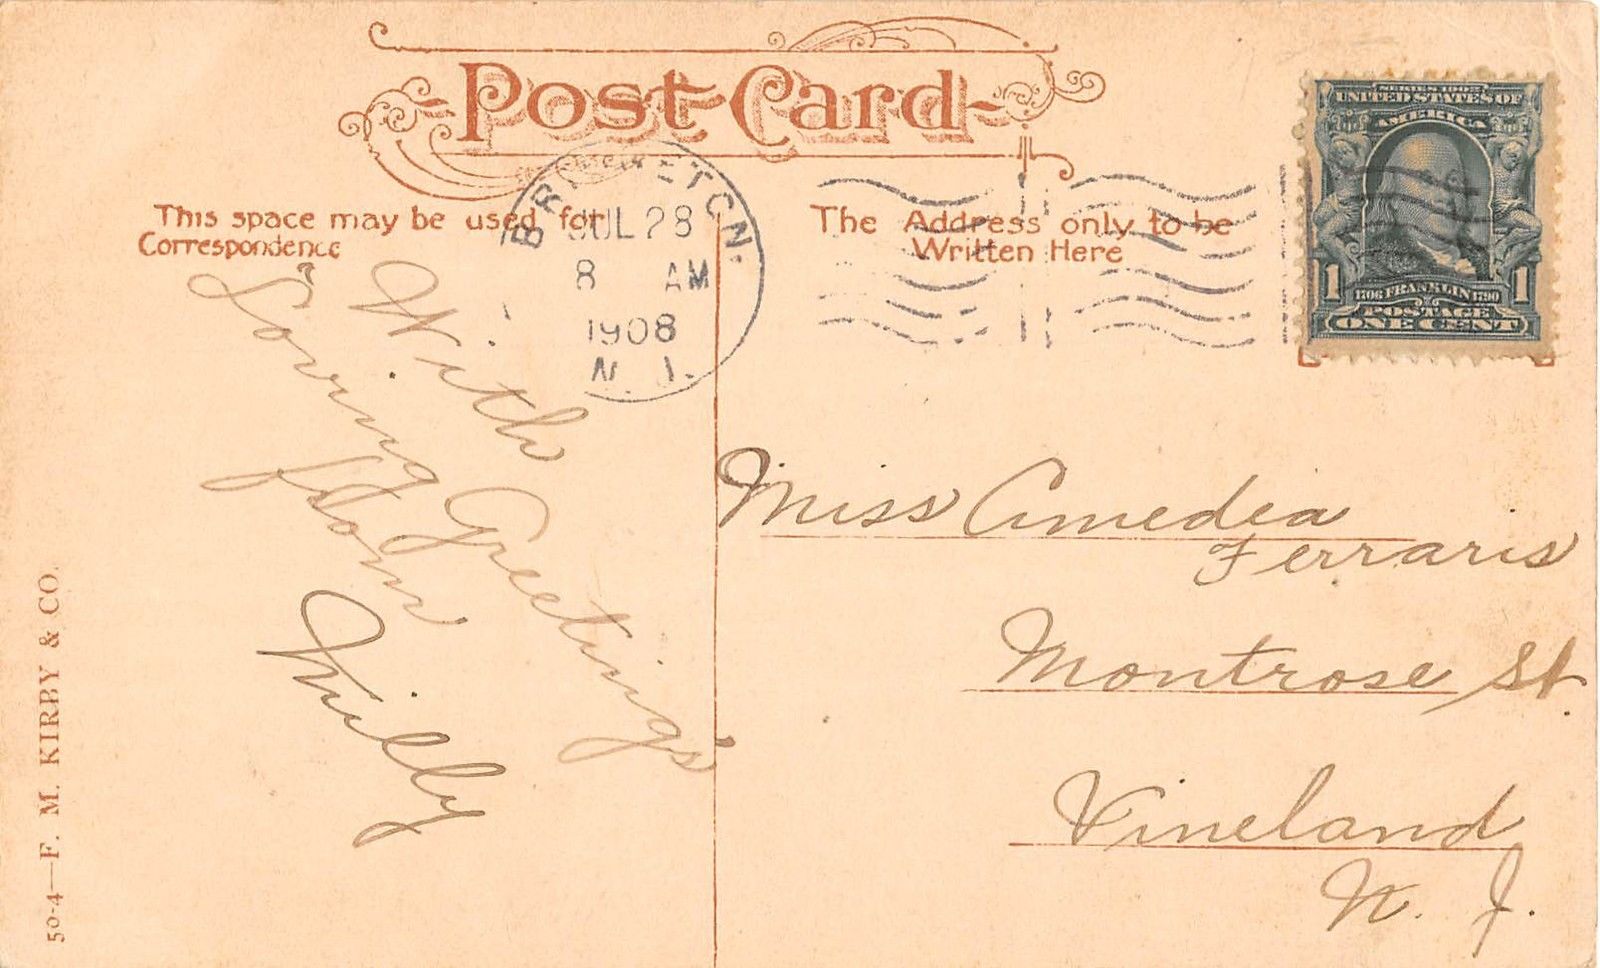 Post Card
This space may be used for
Correspondence
The Address only to be
Written Here
JUL 28
8 AM
1908
N. J.
SERIES 1902
UNITED STATES OF
AMERICA
1706 FRANKLIN 1790
1 1
POSTAGE
ONE CENT
With
Loving Greetings
from
Milly
Miss Amedia
Ferraris
Montrose St.
Vineland
N. J.
50-4—F. M. KIRBY & CO.